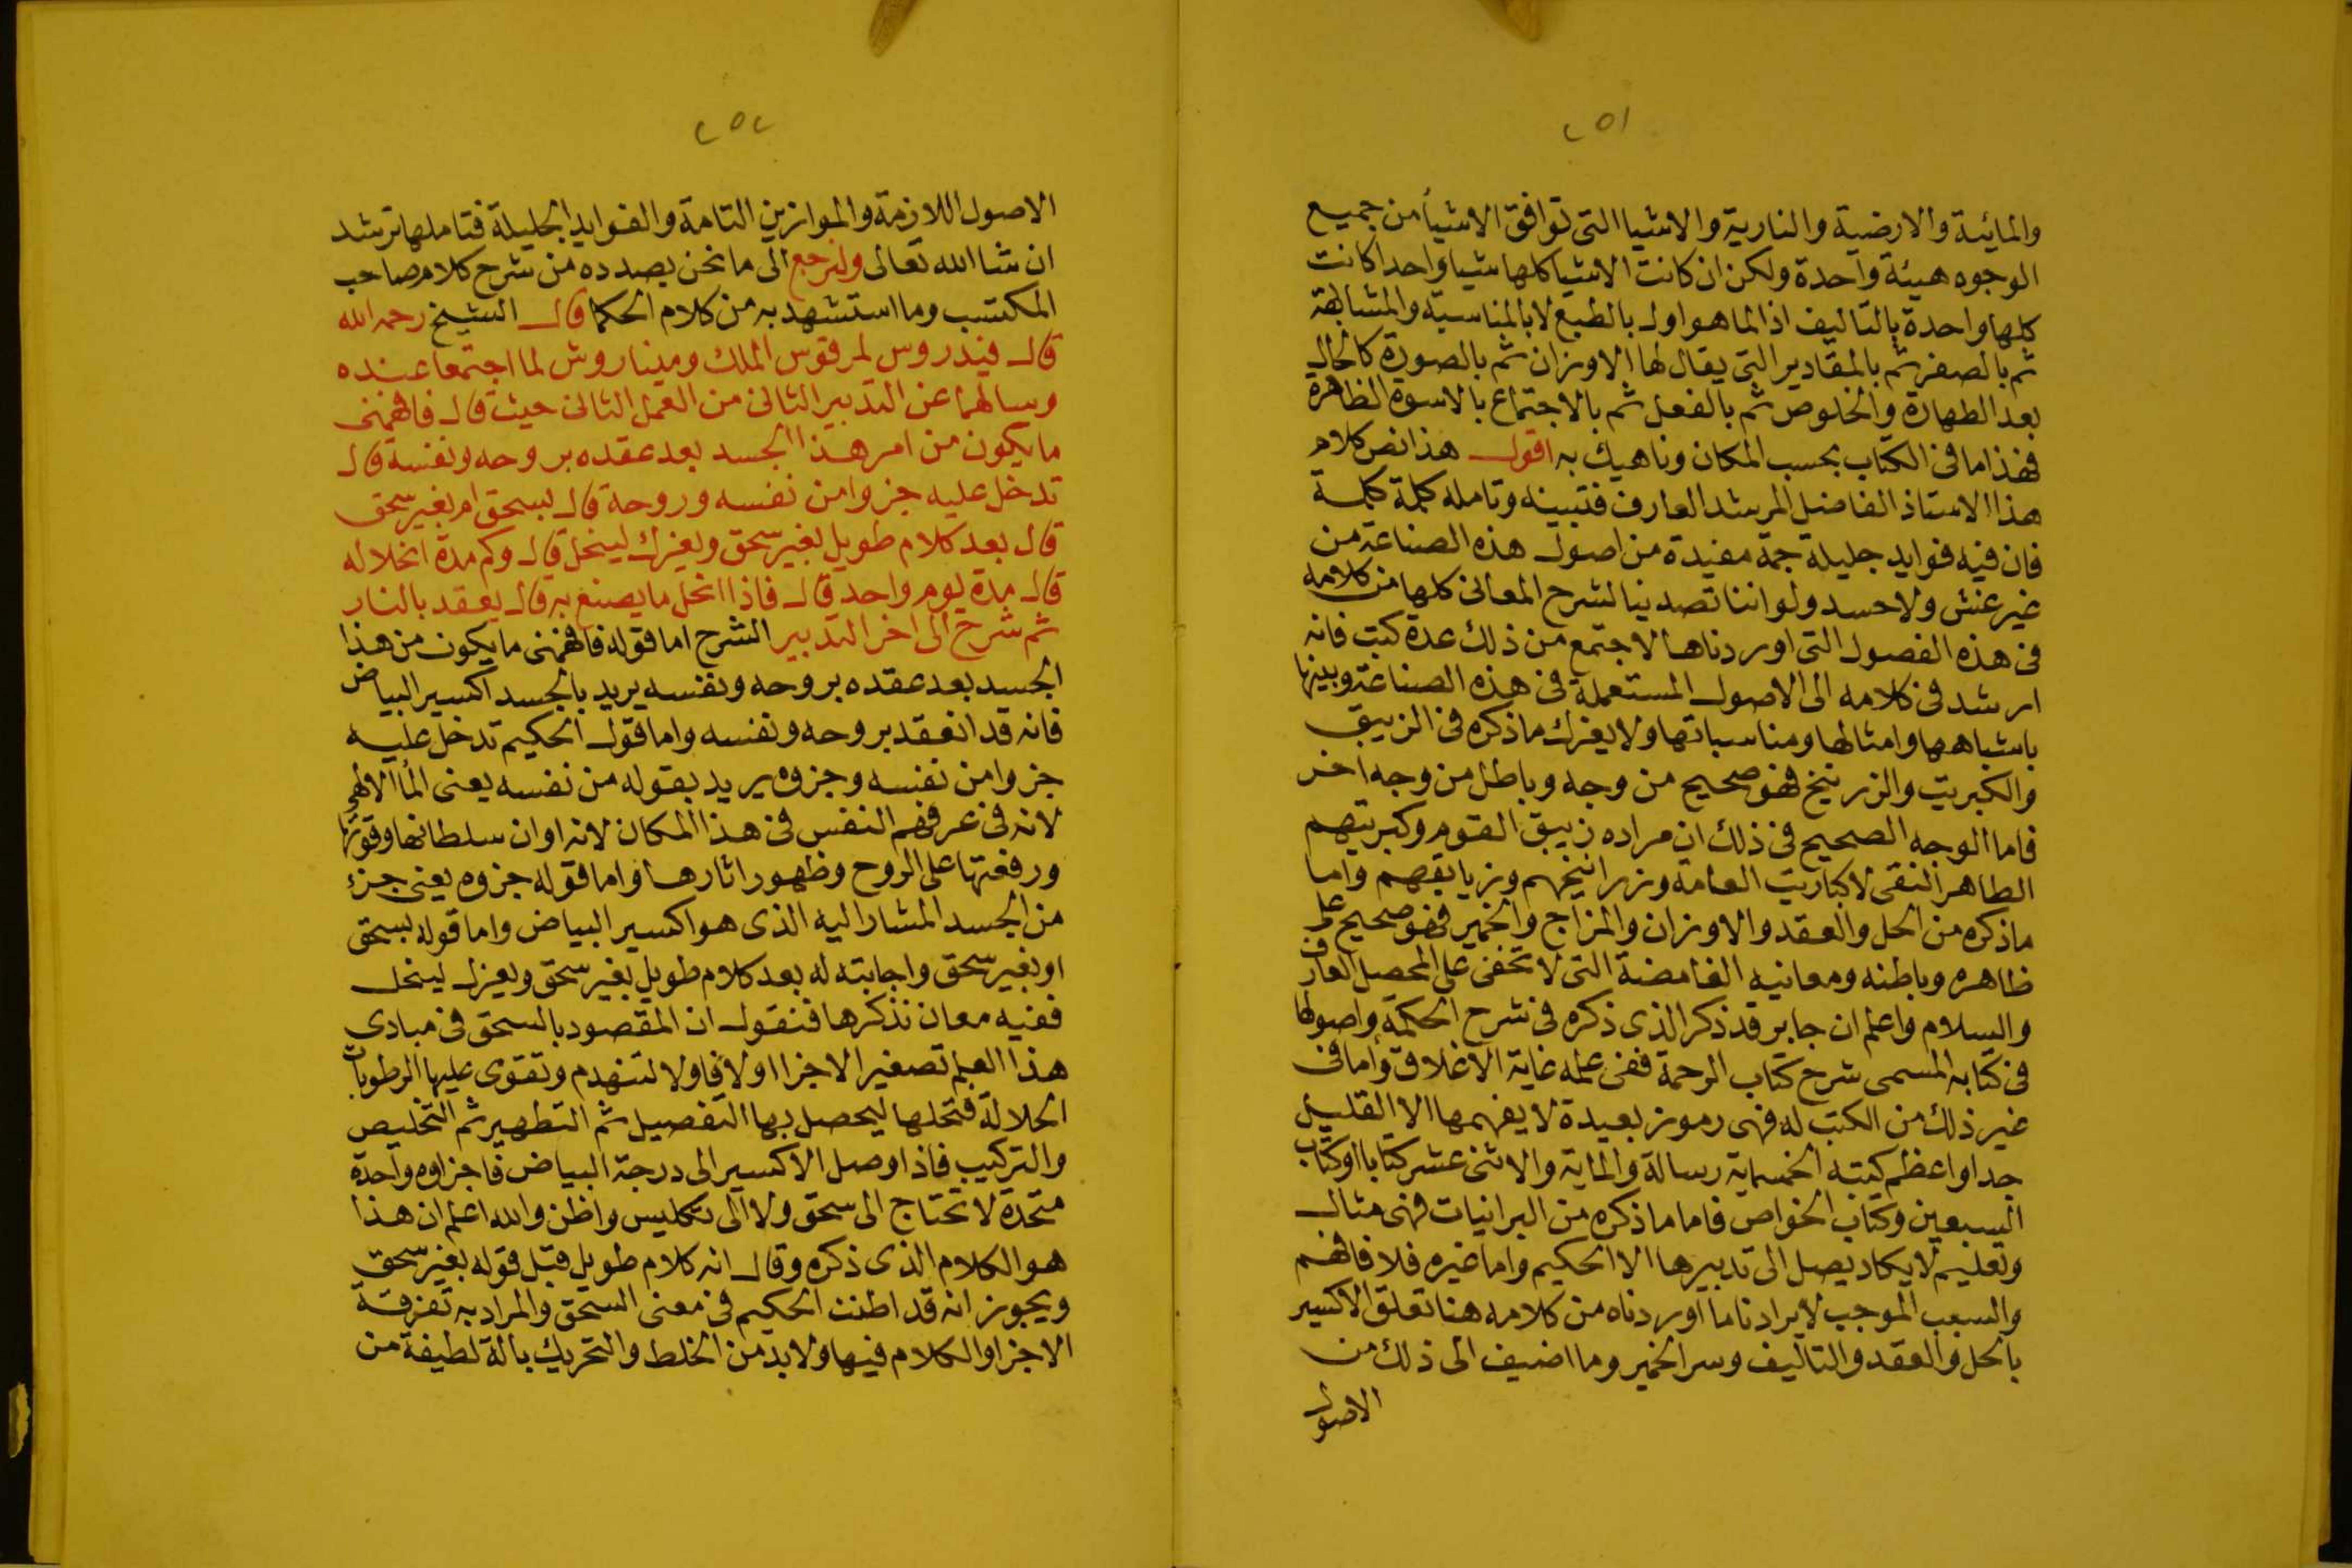 ٢٥١
والمائية والارضية والنارية والاشيا التى توافق الاشيأ من جميع
الوجوه هيئة واحدة ولكن ان كانت الاشيا كلها شيا واحدا كانت
كلها واحدة بالتاليف اذا لما هو اول بالطبع لا بالمناسبة والمشابهة
ثم بالصفر ثم بالمقادير التى يقال لها الاوزان ثم بالصورة كالحال
بعد الطهارة والخلوص ثم بالفعل ثم بالاجتماع بالاسوة الظاهرة
فهذا ما فى الكتاب بحسب المكان وناهيك به اقول هذا نص كلام
هذا الاستاذ الفاضل المرشد العارف فتبينه وتامله كلمة كلمة
فان فيه فوايد جليلة جمة مفيدة من اصول هذه الصناعة من
غير غش ولا حسد ولو اننا تصدينا لشرح المعانى كلها من كلامه
فى هذه الفصول التى اوردناها لاجتمع من ذلك عدة كتب فانه
ارشد فى كلامه الى الاصول المستعملة فى هذه الصناعة وبينها
باشباهها وامثالها ومناسباتها ولا يغرك ما ذكره فى الزيبق
والكبريت والزرنيخ فهو صحيح من وجه وباطل من وجه اخر
فاما الوجه الصحيح فى ذلك ان مراده زيبق القوم وكبريتهم
الطاهر النقى لا كباريت العامة وزرانيخهم وزيابقهم واما
ماذكره من الحل والعقد والاوزان والمزاج والخمير فهو صحيح على
ظاهره وباطنه ومعانيه الغامضة التى لا تخفى على المحصل العارف
والسلام واعلم ان جابر قد ذكر الذى ذكره فى شرح الحكمة واصولها
فى كتابه المسمى شرح كتاب الرحمة ففى علمه غاية الاغلاق واما فى
غير ذلك من الكتب له فهى رموز بعيدة لا يفهمها الا القليل
جدا واعظم كتبه الخمسماية رسالة والماية والاثنى عشر كتابا وكتاب
السبعين وكتاب الخواص فاما ما ذكره من البرانيات فهى مثال
وتعليم لا يكاد يصل الى تدبيرها الا الحكيم واما غيره فلا فافهم
والسبب الموجب لايرادنا ما اوردناه من كلامه هنا تعلق الاكسير
بالحل والعقد والتاليف وسر الخمير وما اضيف الى ذلك من
الاصول
٢٥٢
الاصول اللازمة والموازين التامة والفوايد الجليلة فتاملها ترشد
ان شا الله تعالى ولنرجع الى ما نحن بصدده من شرح كلام صاحب
المكتسب وما استشهد به من كلام الحكما قال الشيخ رحمه الله
قال فيندروس لمرقوس الملك وميناروش لما اجتمعا عنده
وسالهما عن التدبير الثانى من العمل الثانى حيث قال فافهمنى
ما يكون من امر هذا الجسد بعد عقده بروحه ونفسه قال
تدخل عليه جزوا من نفسه وروحة قال بسحق ام بغير سحق
قال بعد كلام طويل بغير سحق ويعزل لينحل قال وكم مدة انحلاله
قال مدة يوم واحد قال فاذا انحل ما يصنع به قال يعقد بالنار
ثم شرح الى اخر التدبير الشرح اما قوله فافهمنى ما يكون من هذا
الجسد بعد عقده بروحه ونفسه يريد بالجسد اكسير البياض
فانه قد انعقد بروحه ونفسه واما قول الحكيم تدخل عليه
جزوا من نفسه وجزوه يريد بقوله من نفسه يعنى المأ الالهى
لانه فى عرفهم النفس فى هذا المكان لانه اوان سلطانها وقوتها
ورفعتها على الروح وظهور اثارها واما قوله جزوه يعنى جزء
من الجسد المشار اليه الذى هو اكسير البياض واما قوله بسحق
او بغير سحق واجابته له بعد كلام طويل بغير سحق ويعزل لينحل
ففيه معان نذكرها فنقول ان المقصود بالسحق فى مبادى
هذا العلم تصغير الاجزا اولا فاولا لتنهدم وتقوى عليها الرطوبات
الحلالة فتحلها ليحصل بها التفصيل ثم التطهير ثم التخليص
والتركيب فاذا وصل الاكسير الى درجة البياض فاجزاوه واحدة
متحدة لا تحتاج الى سحق ولا الى تكليس واظن والله اعلم ان هذا
هو الكلام الذى ذكره وقال انه كلام طويل قبل قوله بغير سحق
ويجوز انه قد اطنب الحكيم فى معنى السحق والمراد به تفرقة
الاجزا والكلام فيها ولا بد من الخلط والتحريك بالة لطيفة من